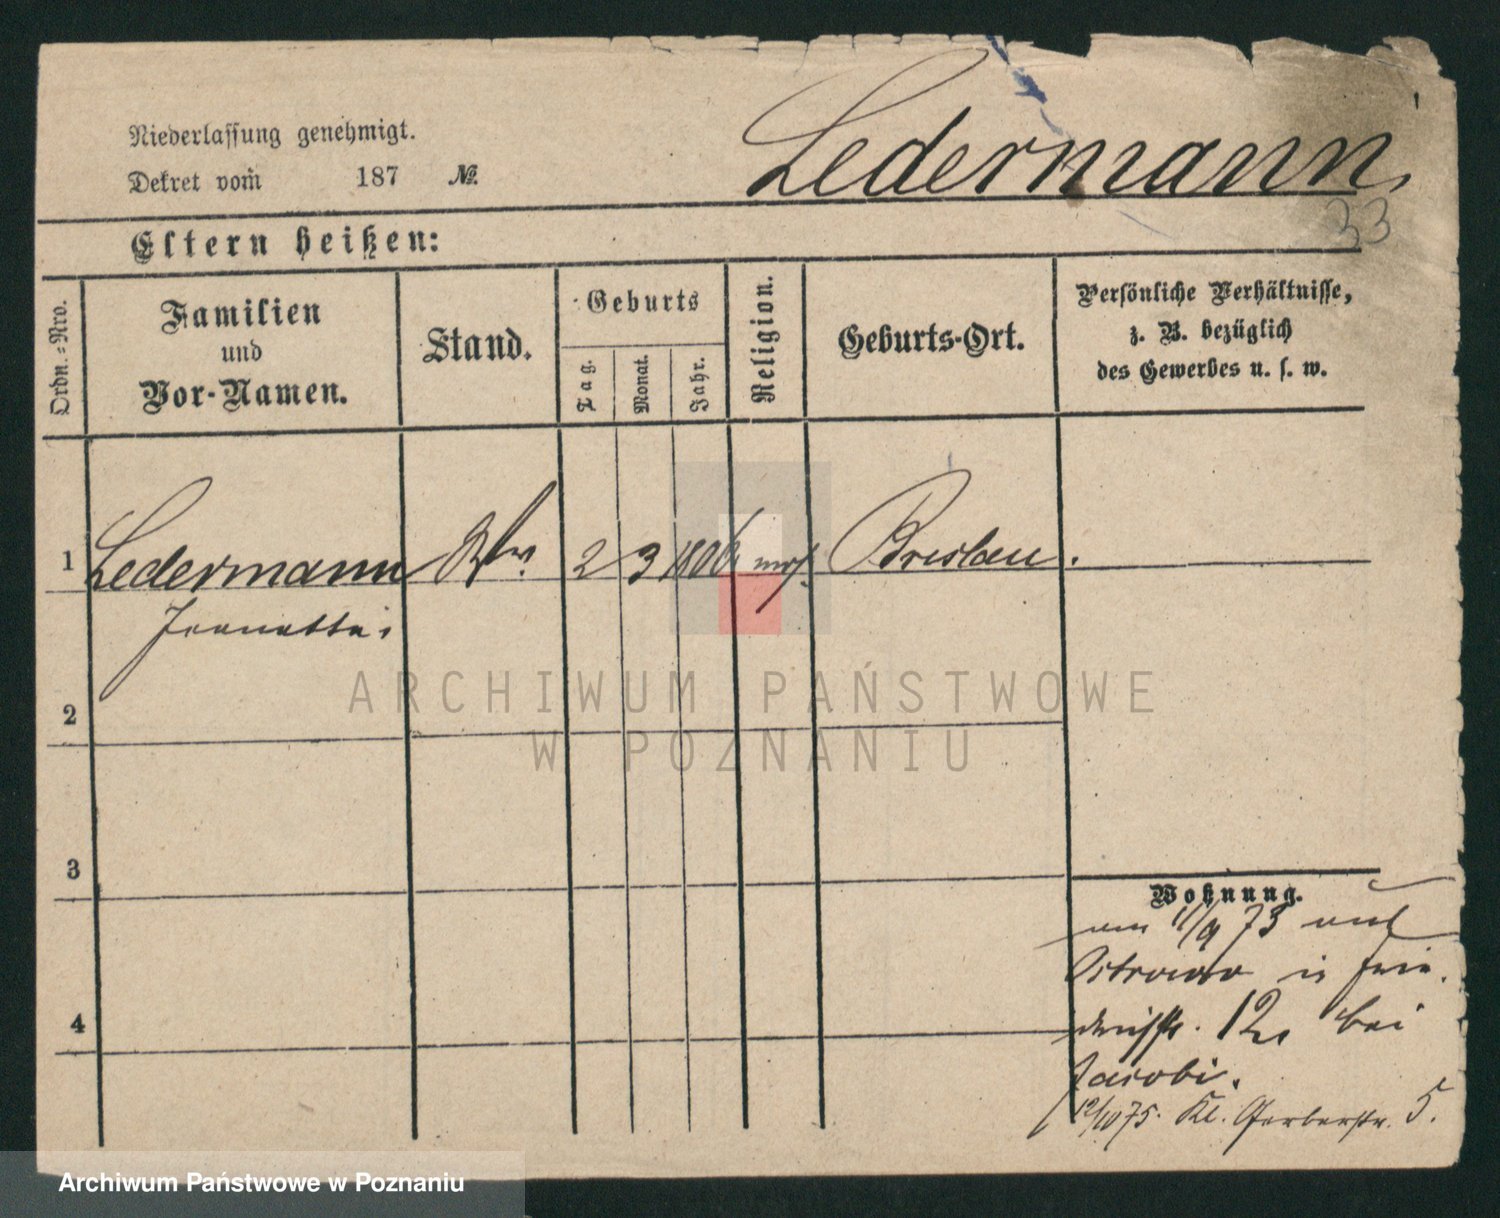 Niederlassung genehmigt.
Dekret vom 187 №.
Ledermann
33
Eltern heißen:
Ordn.-Nro.
Familien
und
Vor-Namen.
Stand.
Geburts
Tag.
Monat.
Jahr.
Religion.
Geburts-Ort.
Persönliche Verhältnisse,
z. B. bezüglich
des Gewerbes u. s. w.
1 Ledermann 2 3 1806 mos. Breslau.
Jeanette.
2
ARCHIWUM PAŃSTWOWE
W POZNANIU
3
Wohnung.
am 11/9 73 aus
Ostrowo in Frie-
4
drichstr. 12. bei
Jacobi.
12/10 75. Kl. Gerberstr. 5.
Archiwum Państwowe w Poznaniu